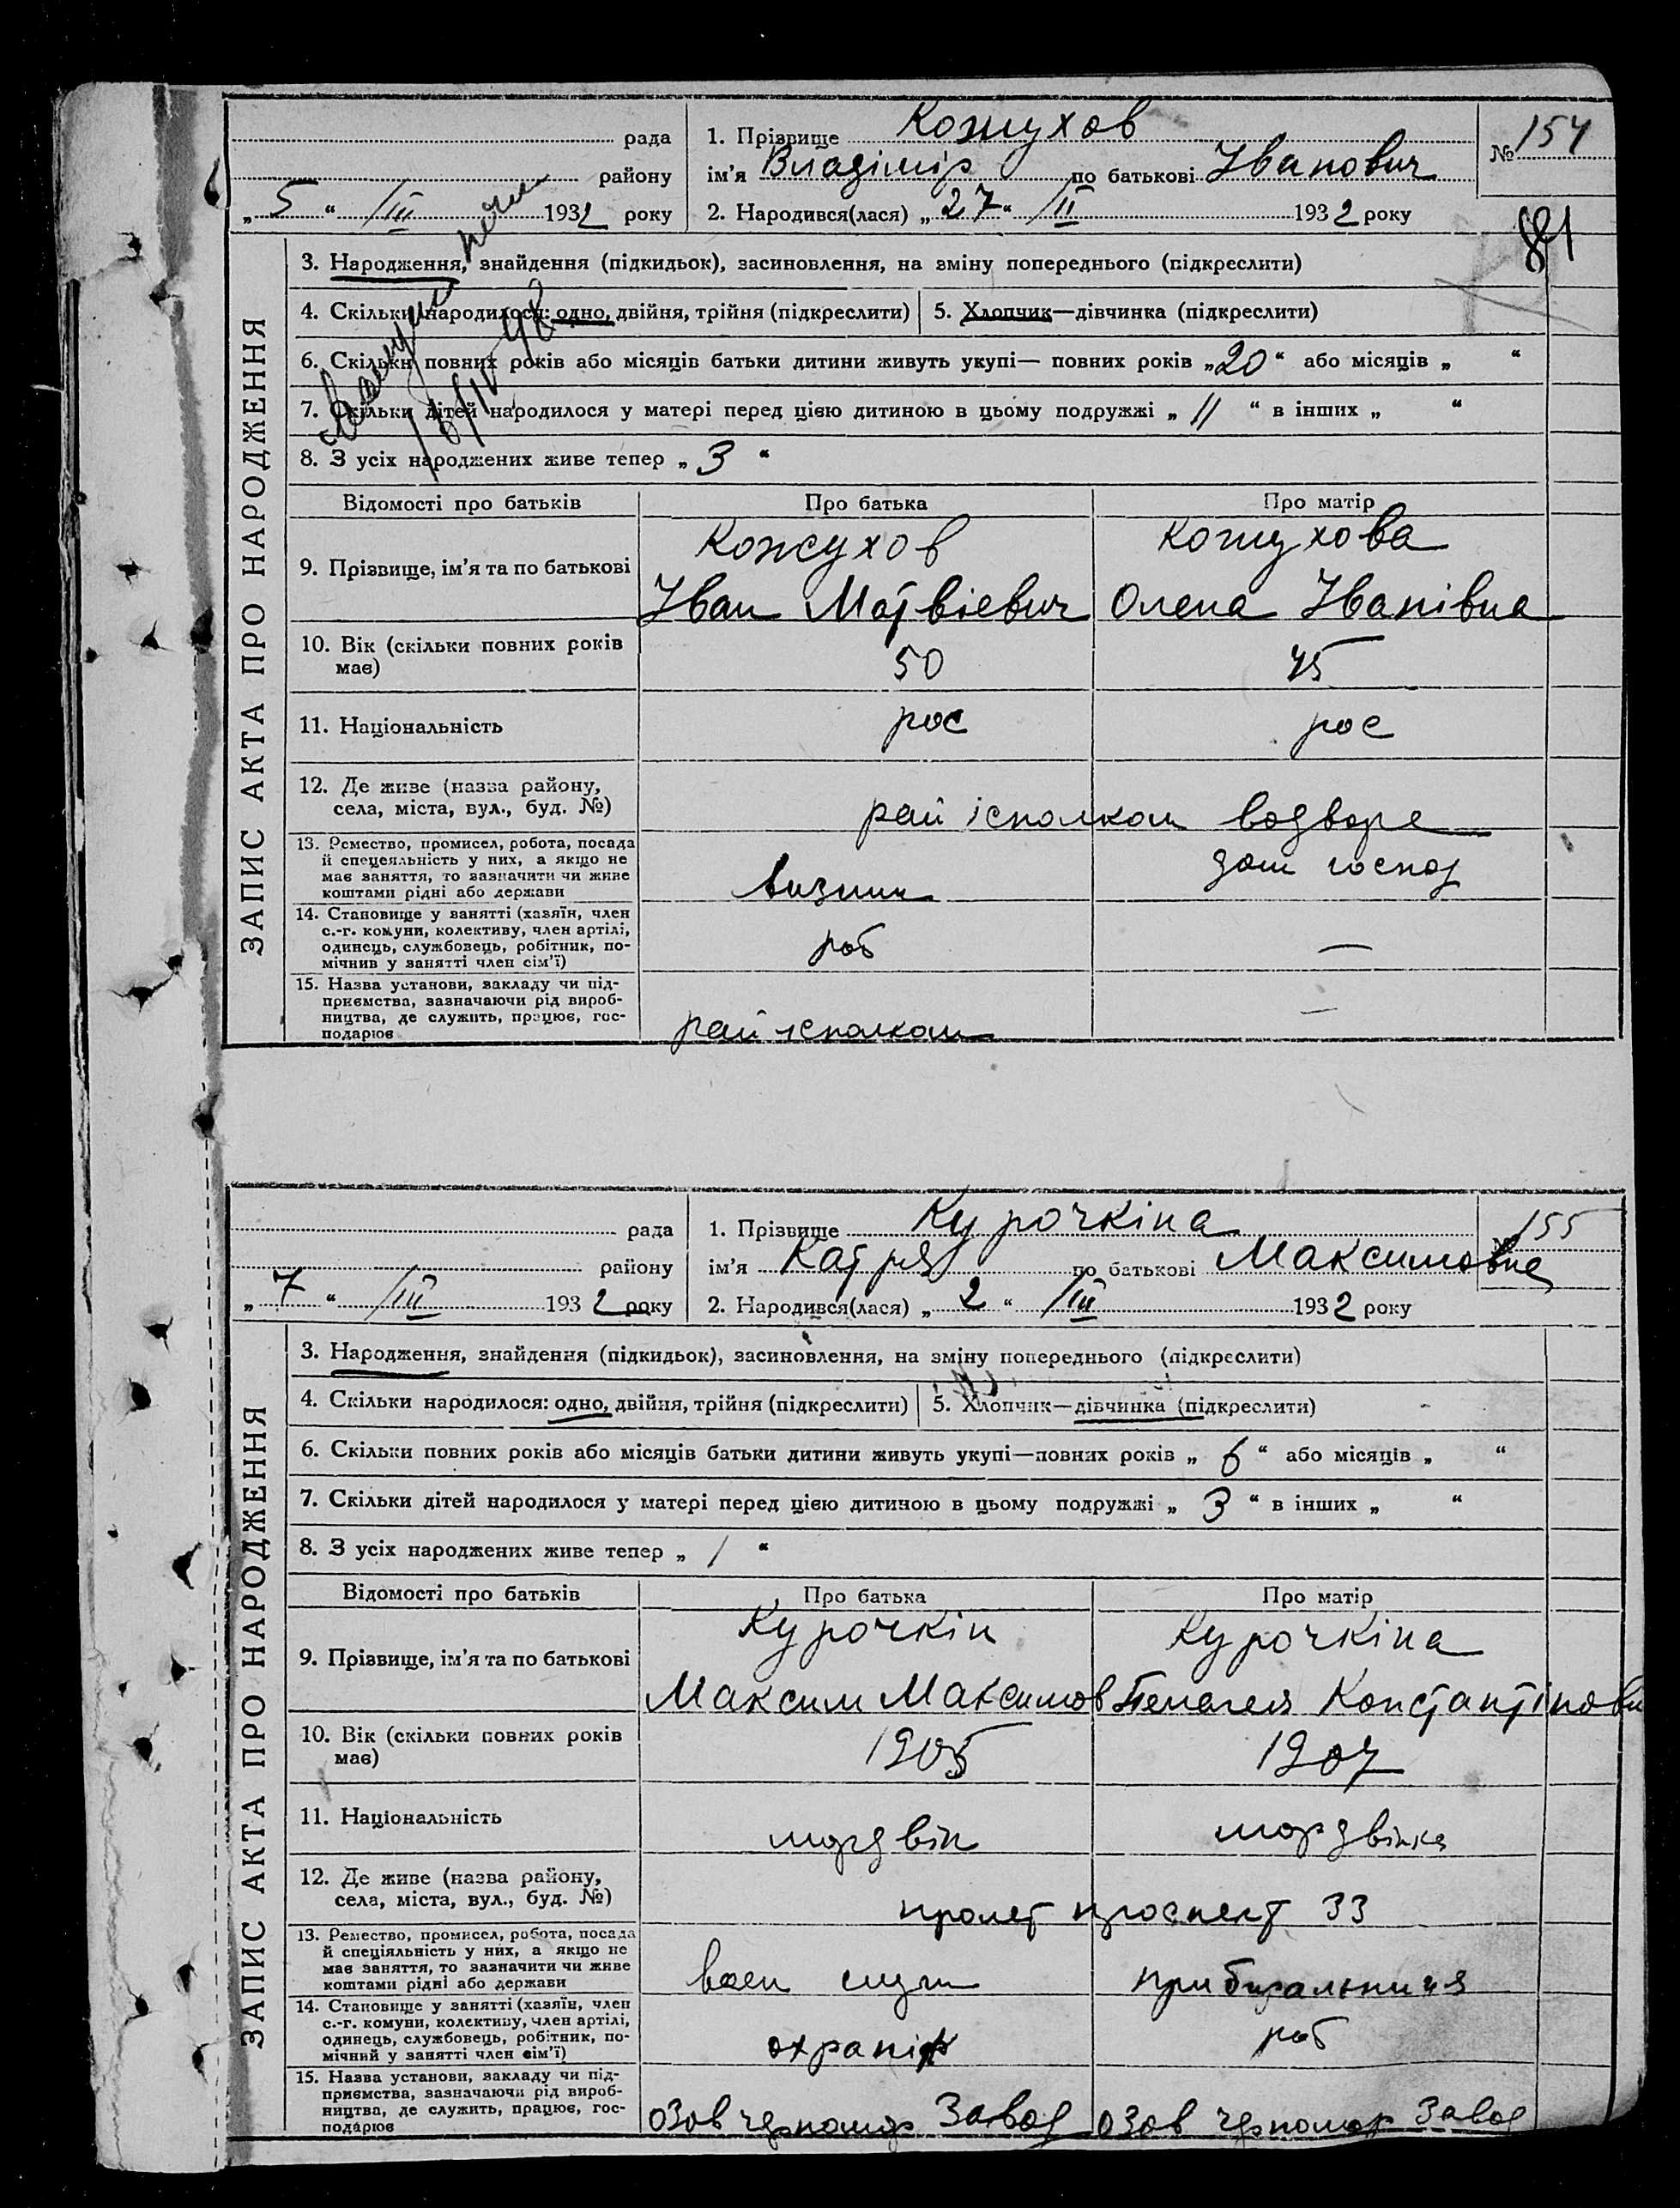 рада
району
„ 5 “ /III 1932 року
1. Прізвище Кожухов
ім'я Владімір по батькові Іванович
2. Народився(лася) „ 27 “ /II 1932 року
№ 154
881
3. Народження, знайдення (підкидьок), засиновлення, на зміну попереднього (підкреслити)
4. Скільки народилося: одно, двійня, трійня (підкреслити)
5. Хлопчик—дівчинка (підкреслити)
6. Скільки повних років або місяців батьки дитини живуть укупі— повних років „ 20 “ або місяців „ “
7. Скільки дітей народилося у матері перед цією дитиною в цьому подружжі „ 11 “ в інших „ “
8. З усіх народжених живе тепер „ 3 “
ЗАПИС АКТА ПРО НАРОДЖЕННЯ
Відомості про батьків
Про батька
Про матір
9. Прізвище, ім'я та по батькові
Кожухов
Іван Матвіевич
Кожухова
Олена Іванівна
10. Вік (скільки повних років
має)
50
45
11. Національність
рос
рос
12. Де живе (назва району,
села, міста, вул., буд. №)
рай ісполком водворе
13. Ремество, промисел, робота, посада
й спецеяльність у них, а якщо не
має заняття, то зазначити чи живе
коштами рідні або держави
визник
дом господ
14. Становище у занятті (хазяїн, член
с.-г. комуни, колективу, член артілі,
одинець, службовець, робітник, по-
мічнив у занятті член сім'ї)
роб
—
15. Назва установи, закладу чи під-
приємства, зазначаючи рід вироб-
ництва, де служить, працює, гос-
подарює
рай ісполком
—
рада
району
„ 7 “ /III 1932 року
1. Прізвище Курочкіна
ім'я Катря по батькові Максимовна
2. Народився(лася) „ 2 “ /III 1932 року
155
3. Народження, знайдення (підкидьок), засиновлення, на зміну попереднього (підкреслити)
4. Скільки народилося: одно, двійня, трійня (підкреслити)
5. Хлопчик—дівчинка (підкреслити)
6. Скільки повних років або місяців батьки дитини живуть укупі—повних років „ 6 “ або місяців „ “
7. Скільки дітей народилося у матері перед цією дитиною в цьому подружжі „ 3 “ в інших „ “
8. З усіх народжених живе тепер „ 1 “
ЗАПИС АКТА ПРО НАРОДЖЕННЯ
Відомості про батьків
Про батька
Про матір
9. Прізвище, ім'я та по батькові
Курочкін
Максим Максимов
Курочкіна
Пелагея Константіновн
10. Вік (скільки повних років
має)
1905
1907
11. Національність
мордвін
мордвінка
12. Де живе (назва району,
села, міста, вул., буд. №)
пролет проспект 33
13. Ремество, промисел, робота, посада
й спеціяльність у них, а якщо не
має заняття, то зазначити чи живе
коштами рідні або держави
воен служ
прибиральниця
14. Становище у занятті (хазяїн, член
с.-г. комуни, колективу, член артілі,
одинець, службовець, робітник, по-
мічний у занятті член сім'ї)
охранік
роб
15. Назва установи, закладу чи під-
приємства, зазначаючи рід вироб-
ництва, де служить, працює, гос-
подарює
Озов черномор Завод
Озов черномор Завод